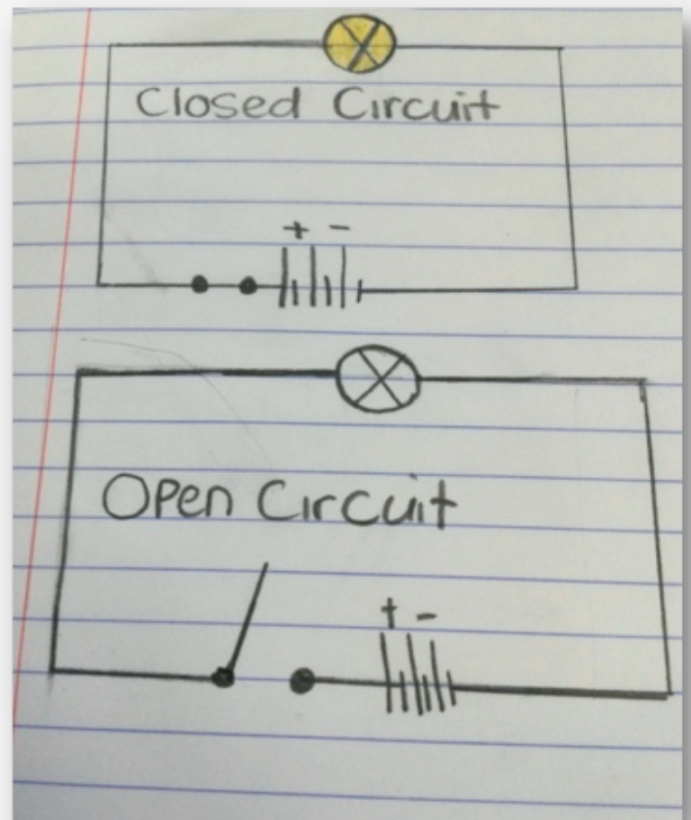 Closed Circuit
+ -
Open Circuit
+ -